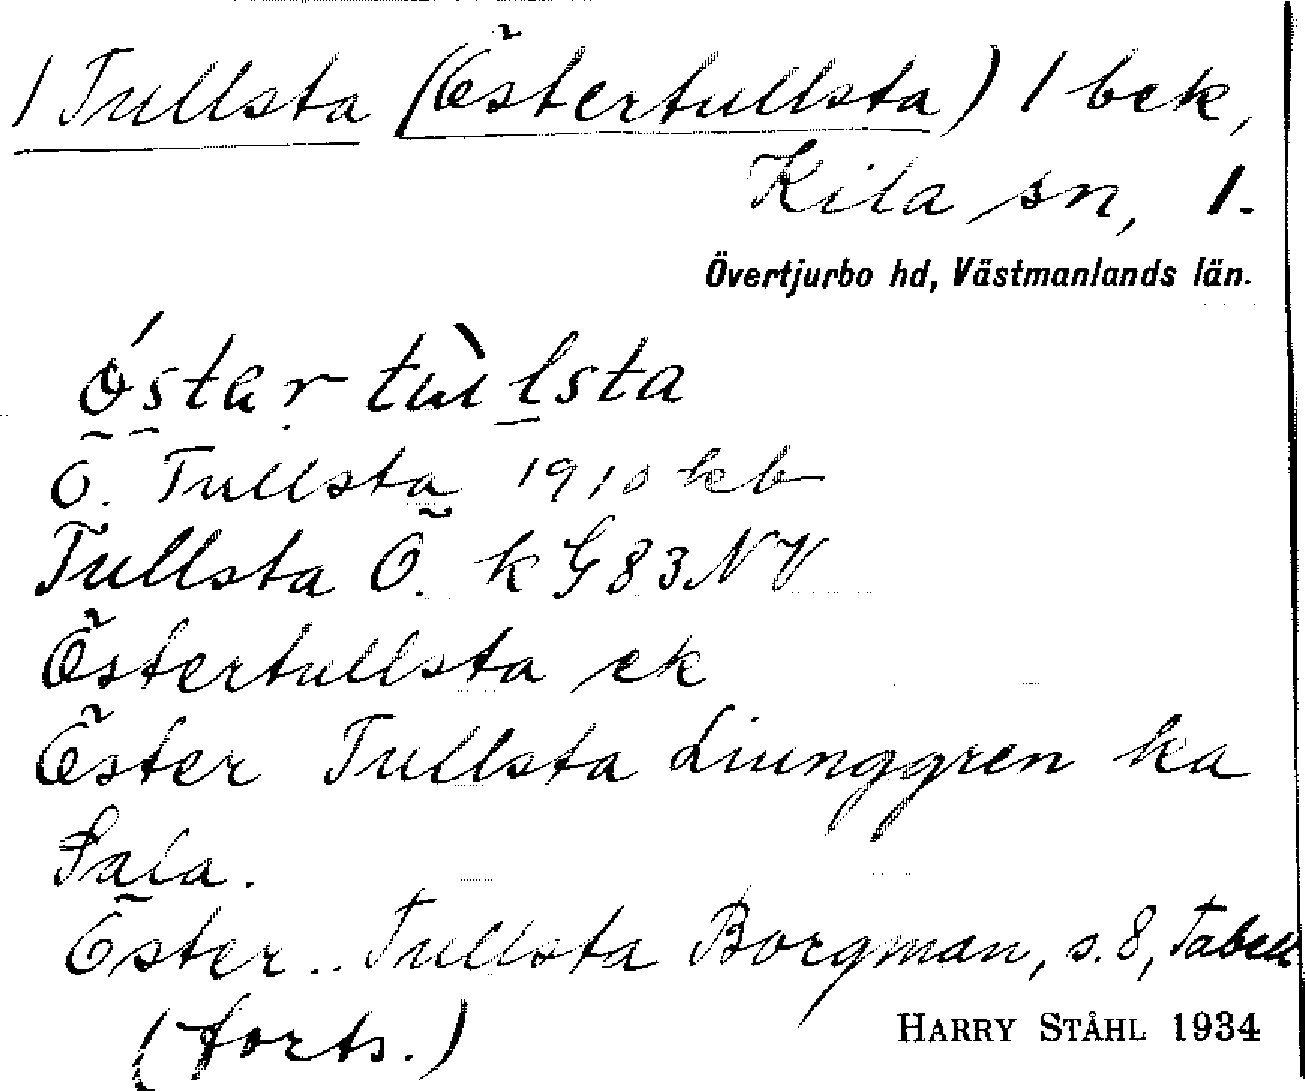 / Tullsta (Östertullsta) / bek,
Kila sn, 1.
Övertjurbo hd, Västmanlands län.
Ö. Tullsta 1910 kb
Tullsta Ö. k G 83 NV
Östertullsta ek
Öster Tullsta Liunggren ka
Sala.
Öster.. Tullsta Borgman, s. 8, Tabell
(forts.)
HARRY STÅHL 1934